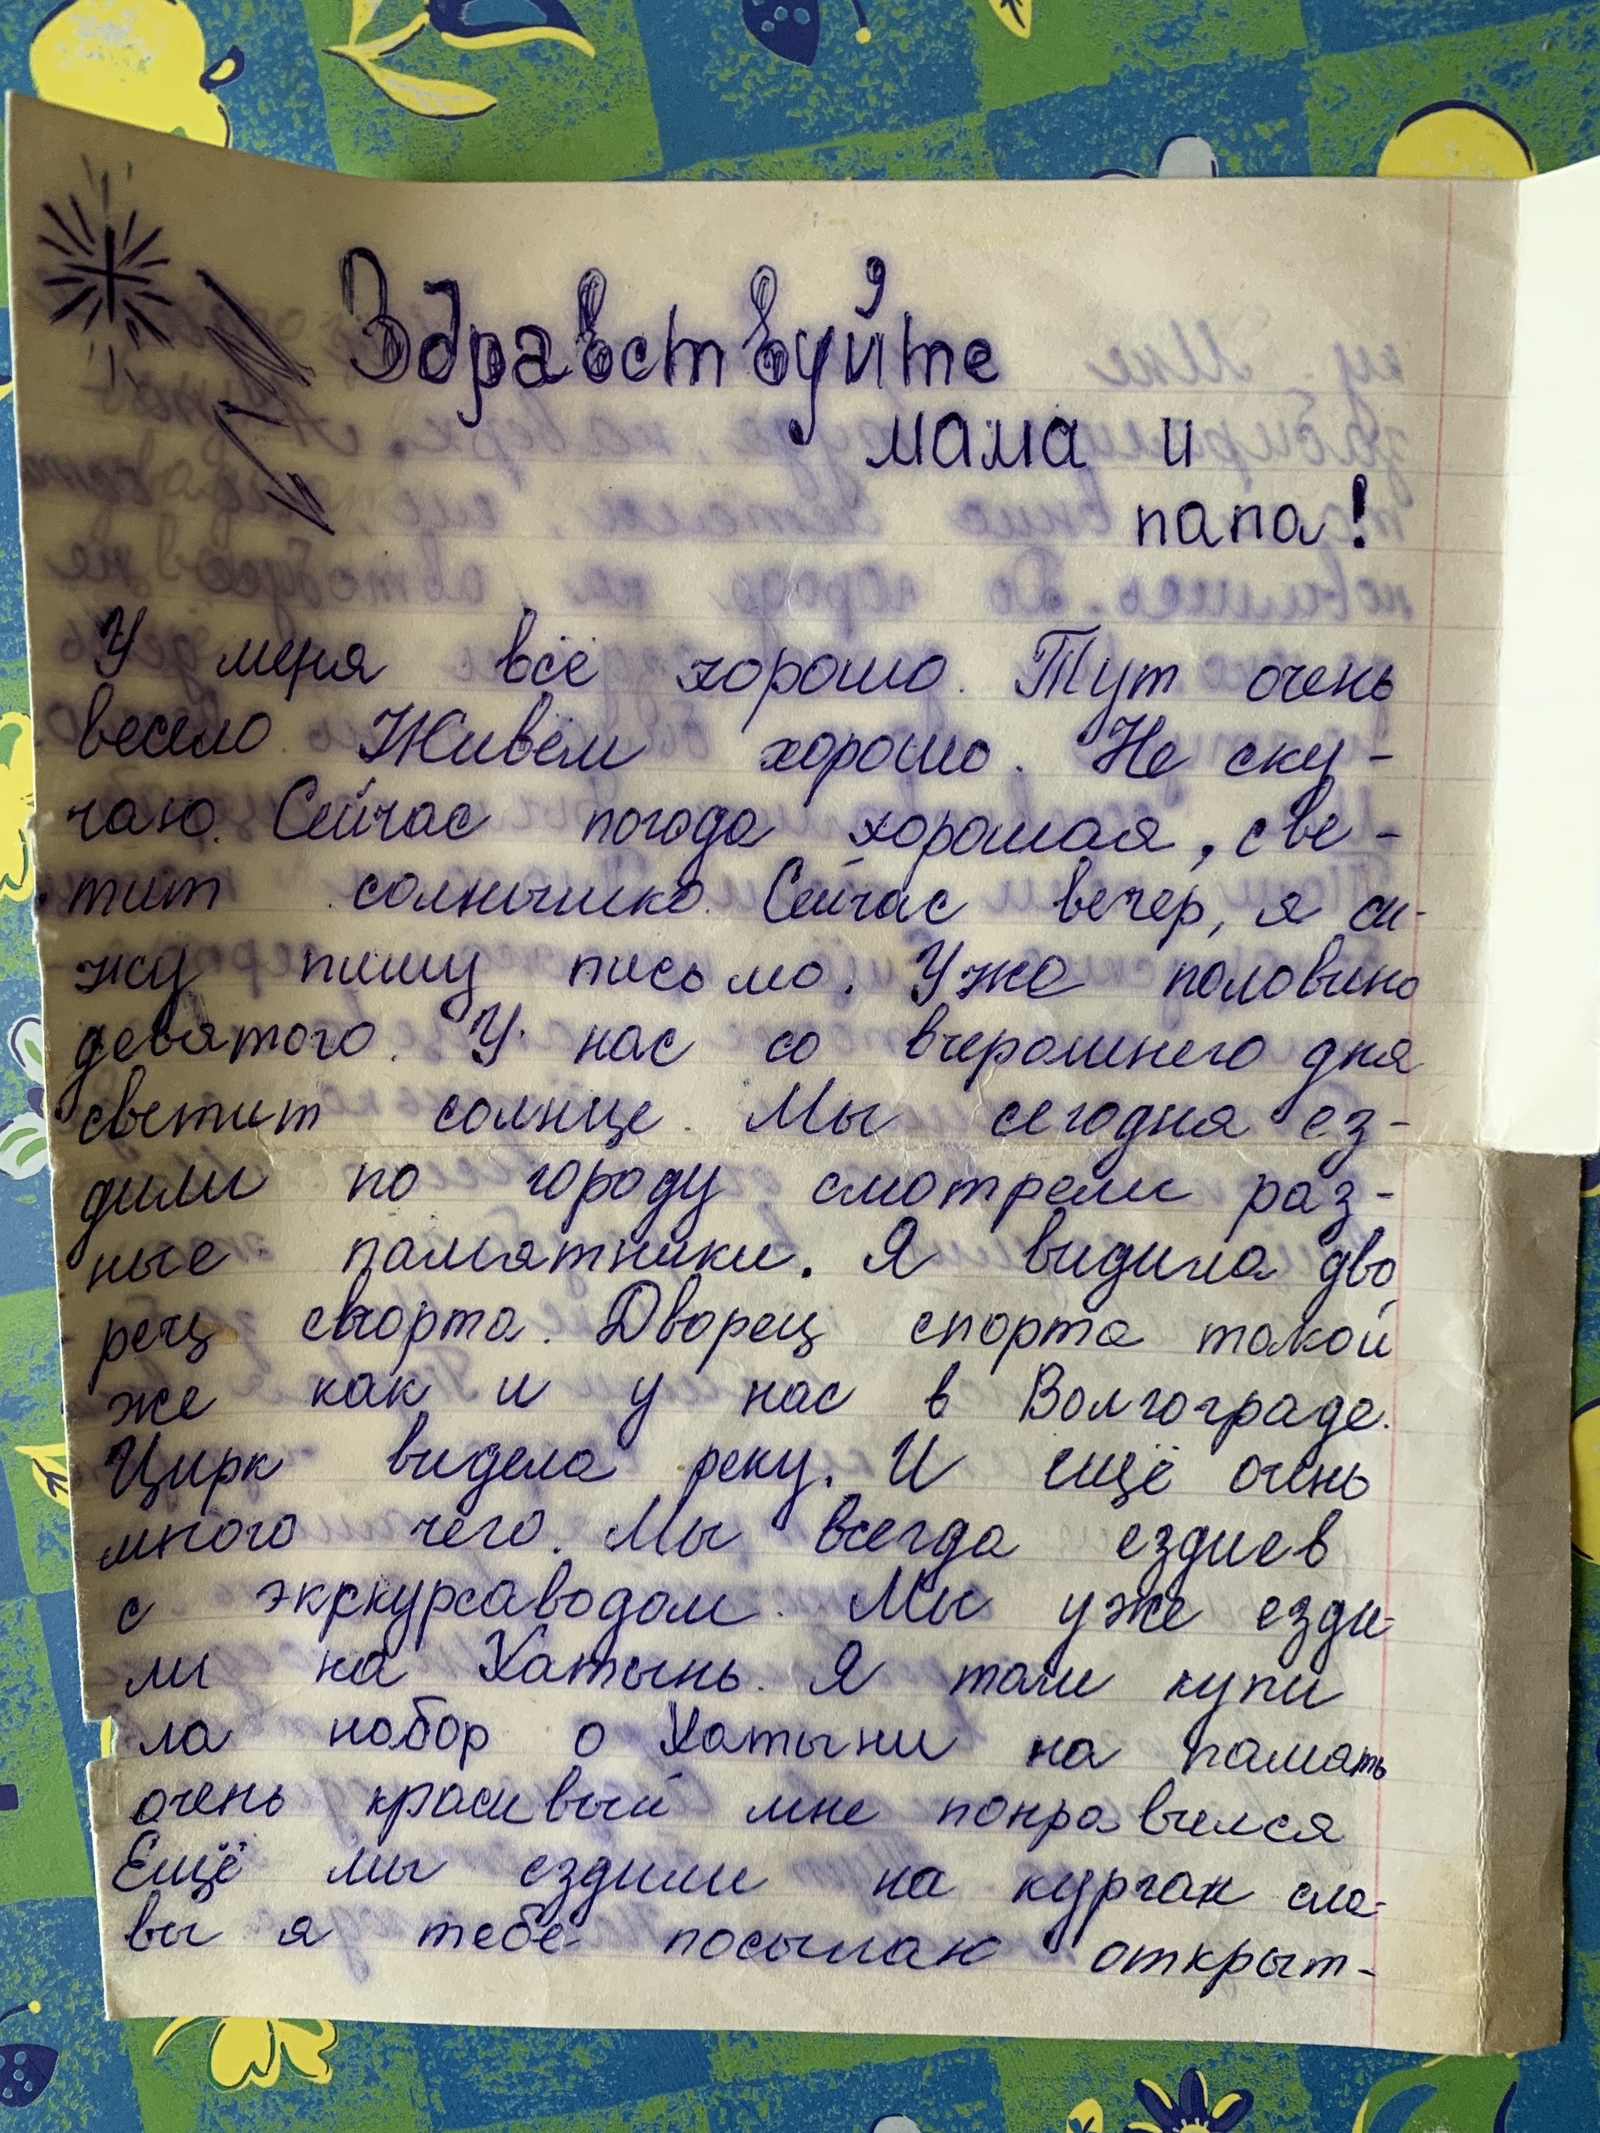 Здравствуйте
мама и
папа!
У меня всё хорошо. Тут очень
весело. Живём хорошо. Не ску-
чаю. Сейчас погода хорошая, све-
тит солнышко. Сейчас вечер, я си-
жу пишу письмо. Уже половина
девятого. У нас со вчерашнего дня
светит солнце. Мы сегодня ез-
дили по городу смотрели раз-
ные памятники. Я видила дво
рец спорта. Дворец спорта такой
же как и у нас в Волгограде.
Цирк видела реку. И ещё очень
много чего. Мы всегда ездиев
с экскурсаводом. Мы уже езди-
ли на Хатынь. Я там купи
ла набор о Хатыни на память
очень красивый мне понравился
Ещё мы ездили на курган сла-
вы я тебе посылаю открыт-